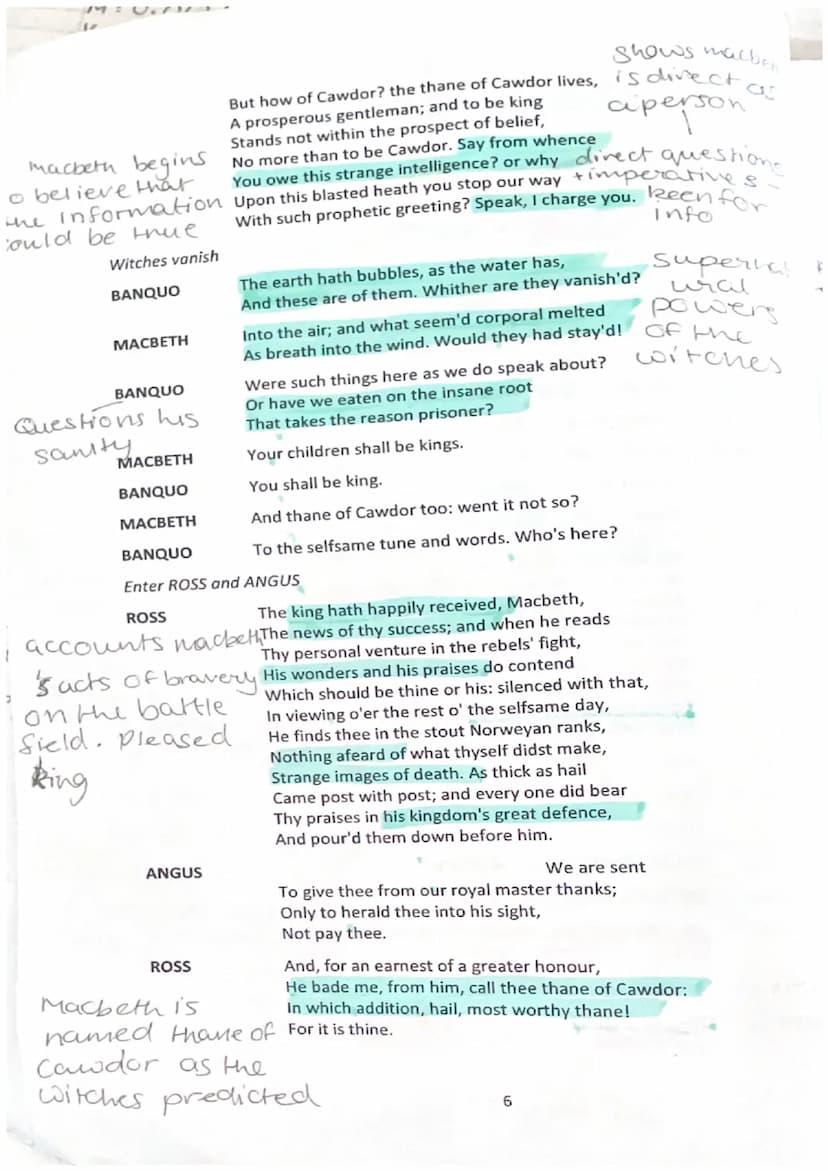 shows macbeth
is direct as
a person
But how of Cawdor? the thane of Cawdor lives,
A prosperous gentleman; and to be king
Stands not within the prospect of belief,
No more than to be Cawdor. Say from whence
You owe this strange intelligence? or why
Upon this blasted heath you stop our way
With such prophetic greeting? Speak, I charge you.
direct questions
+imperatives -
keen for
info
Macbeth begins
o believe that
the information
could be true
Witches vanish
BANQUO The earth hath bubbles, as the water has,
And these are of them. Whither are they vanish'd?
MACBETH Into the air; and what seem'd corporal melted
As breath into the wind. Would they had stay'd!
supernat
ural
powers
of the
witches
BANQUO Were such things here as we do speak about?
Or have we eaten on the insane root
That takes the reason prisoner?
Questions his
sanity
MACBETH Your children shall be kings.
BANQUO You shall be king.
MACBETH And thane of Cawdor too: went it not so?
BANQUO To the selfsame tune and words. Who's here?
Enter ROSS and ANGUS
ROSS The king hath happily received, Macbeth,
The news of thy success; and when he reads
Thy personal venture in the rebels' fight,
His wonders and his praises do contend
Which should be thine or his: silenced with that,
In viewing o'er the rest o' the selfsame day,
He finds thee in the stout Norweyan ranks,
Nothing afeard of what thyself didst make,
Strange images of death. As thick as hail
Came post with post; and every one did bear
Thy praises in his kingdom's great defence,
And pour'd them down before him.
accounts macbeth
's acts of bravery
on the battle
field. Pleased
king
ANGUS We are sent
To give thee from our royal master thanks;
Only to herald thee into his sight,
Not pay thee.
ROSS And, for an earnest of a greater honour,
He bade me, from him, call thee thane of Cawdor:
In which addition, hail, most worthy thane!
For it is thine.
Macbeth is
named thane of
Cawdor as the
witches predicted
6